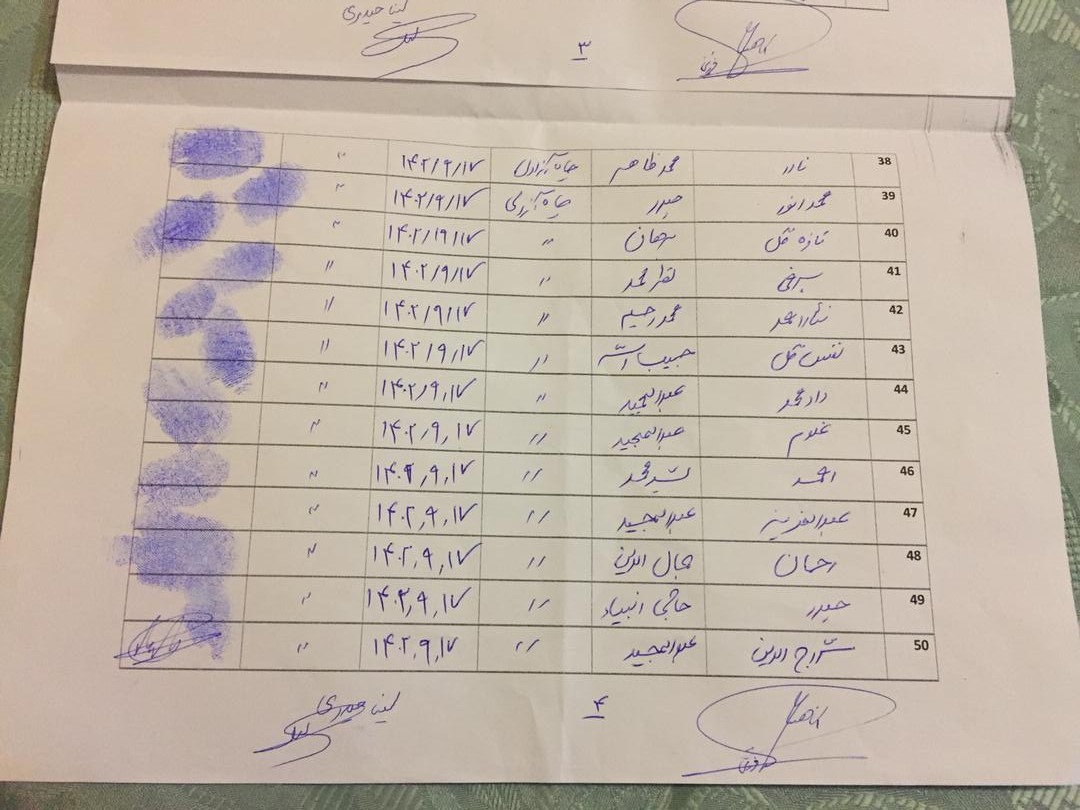 لینا حیدری
۳
38 نادر محمد ظاهر ۱۴۰۲/۹/۱۷ "
39 محمد انور حیدر ۱۴۰۲/۹/۱۷ "
40 تازه گل ۱۴۰۲/۹/۱۷ "
41 نظر محمد " ۱۴۰۲/۹/۱۷ "
42 نثار احمد محمد رحیم " ۱۴۰۲/۹/۱۷ "
43 حبیب الله " ۱۴۰۲/۹/۱۷ "
44 داد محمد عبدالمجید " ۱۴۰۲/۹/۱۷ "
45 غلام عبدالمجید " ۱۴۰۲/۹/۱۷ "
46 احمد " ۱۴۰۲/۹/۱۷ "
47 عبدالعزیز عبدالمجید " ۱۴۰۲/۹/۱۷ "
48 رحمان جمال الدین " ۱۴۰۲/۹/۱۷ "
49 حیدر حاجی انبیاء " ۱۴۰۲/۹/۱۷ "
50 سراج الدین عبدالمجید " ۱۴۰۲/۹/۱۷ "
لینا حیدری
۴